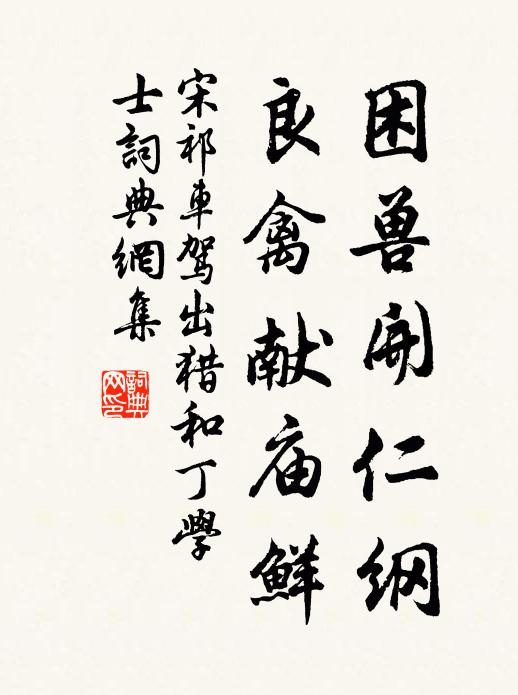 困兽開仁纲
良禽献庙鮮
宋祁車駕出猎和丁學
士詞典網集
詞典网印